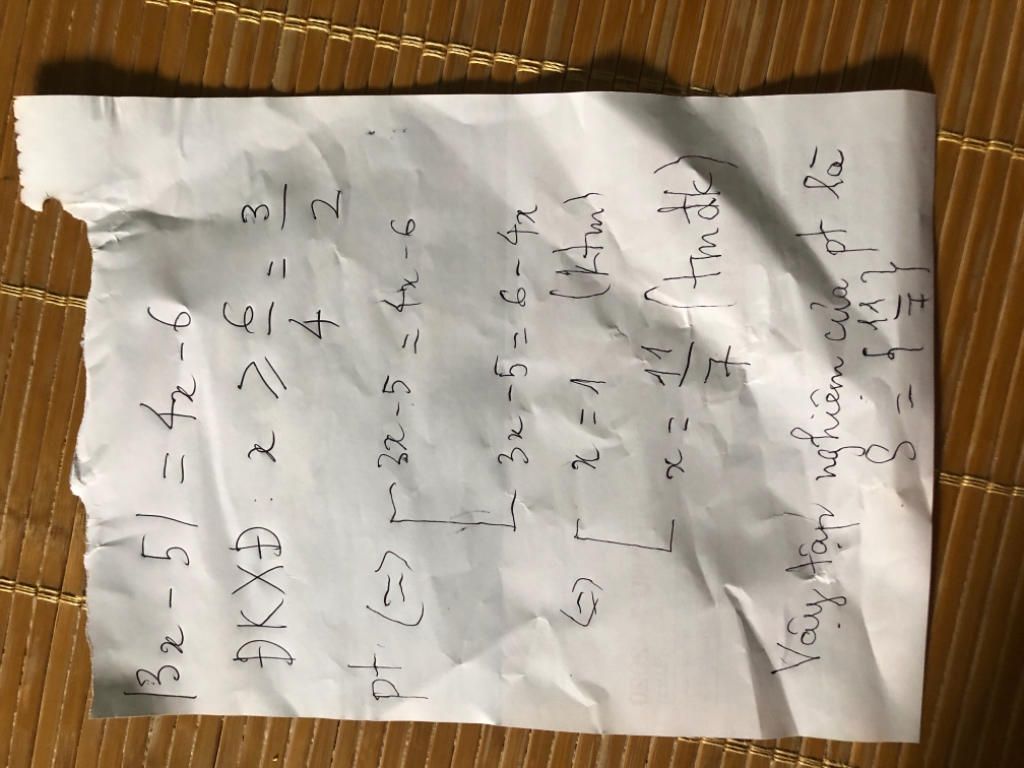 |3x - 5| = 4x - 6
ĐKXĐ : x ⩾ 6/4 = 3/2
pt (=) [ 3x - 5 = 4x - 6
3x - 5 = 6 - 4x
(=) [ x = 1 (ktm)
x = 11/7 (tmđk)
Vậy tập nghiệm của pt là
S = { 11/7 }